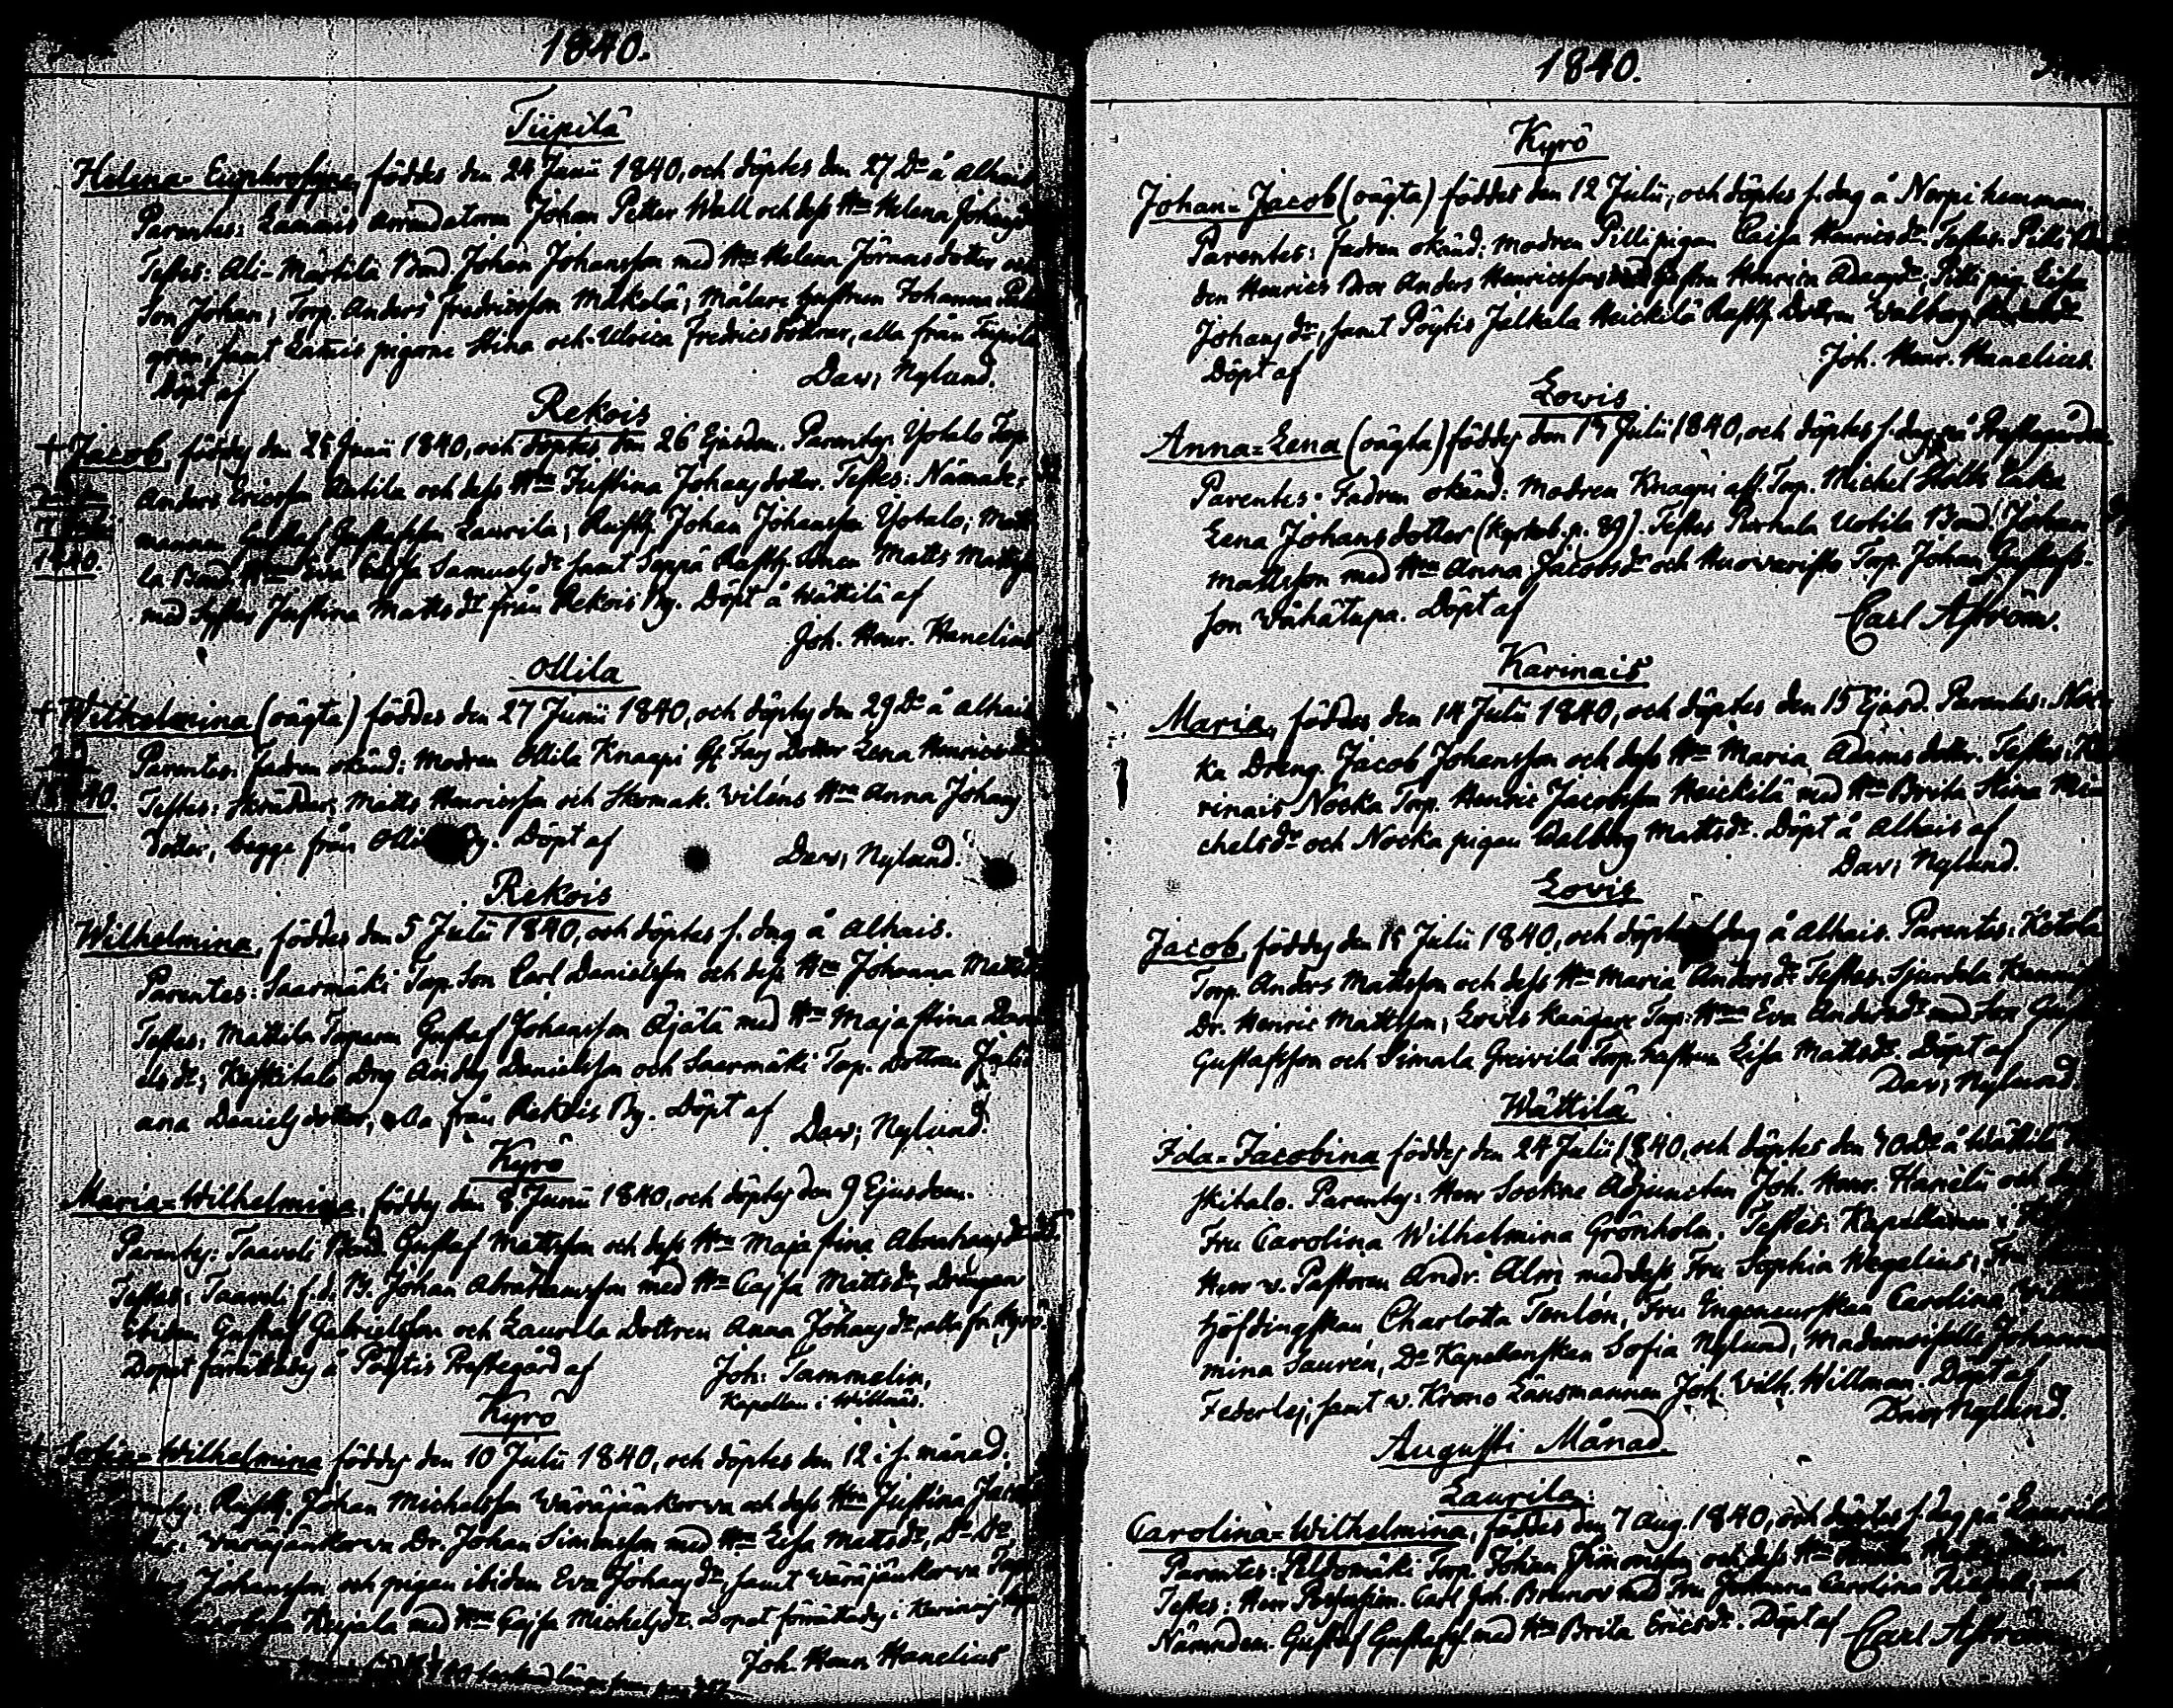 1840.
Tiipilä
Helena=Euphrosine, föddes den 24 Junii 1840, och döptes den 27 D:o å Alhais
Parentes: Lammis Arrendatorn Johan Petter Wall och dess H:u Helena
Testes: Ali-Märtilä Bond. Johan Johansson med H:u Helena Jöransdotter och
Son Johan; Torp. Anders Fredricsson Mäkelä; Målare hustrun Johanna
samt Lammis pigorne Stina och Ulrica Fredricsdöttrar, alla från Tiipilä
Döpt af
Dav; Nylund.
Rekois
+ Jacob, föddes den 25 Junii 1840, och döptes den 26 Ejusdem. Parentes: Yotalo Torp.
Anders Ericsson Antila och dess H:u Justina Johansdotter. Testes: Nämnde=
mannen Gustaf Gustafsson Laurila; Rusth. Johan Johansson Yotalo;
1840.
la Bond. H:u Eva Caisa Samuelsd:r samt Seppä Rusth. Sonen Matts Mattss
med Syster Justina Mattsd:r från Rekois By. Döpt å Wättilä af
Joh. Henr. Hanelius
Ollila
+ Wilhelmina (oägta) föddes den 27 Junii 1840, och döptes den 29 D:o å Alhais
Parentes: Fadren okänd: Modren Ollila Knaapi Dotter Lena Henrics
1840.
Testes: Skräddar. Matts Henricsson och Skomak. Viléns H:u Anna Johans
dotter, begge från By. Döpt af
Dav; Nylund.
Rekois
Wilhelmina, föddes den 5 Julii 1840, och döptes s. dag å Alhais.
Parentes: Saarmäki Torp. Son Carl Danielsson och dess H:u Johanna Mattsd
Testes: Mattila Torparn Gustaf Johansson Äjälä med H:u Maja Stina
elsd:r; Keskitalo Drg Anders Danielsson och Saarmäki Torp. Dottren Juli
ana Danielsdotter, alla från Rekois By. Döpt af
Dav; Nylund.
Kyrö
Maria=Wilhelmina, föddes den 8 Junii 1840, och döptes den 9 Ejusdem.
Parentes: Taavoli Bond. Gustaf Mattsson och dess H:u Maja Stina Abrahamsd:r
Testes: Taavoli f.d. B. Johan Abrahamsson med H:u Cajsa Mattsd:r, Drängen
ibidem Gustaf Gabrielsson och Laurila Dottren Anna Johansd:r, alla fr. Kyrö.
Dopet förrättades å Pöytis Prestegård af
Joh: Tammelin,
Kapellan i Willnäs.
Kyrö
Sofia=Wilhelmina föddes den 10 Julii 1840, och döptes den 12 i s. månad.
Rusth. Johan Michelsson Wäräjänkorva och dess H:u Justina
Wäräjänkorva Dr. Johan Simonsson med H:u Lisa Mattsd:r, D:o D:o
Johansson och pigan ibidem Eva Johansd:r, samt Wäräjänkorva Torp
Kujala med H:u Cajsa Michelsd:r. Dopet förrättades i
Joh. Henr. Hanelius
1840.
Kyrö
Johan=Jacob (oägta) föddes den 12 Julii, och döptes s. dag å Norpi hemman.
Parentes: Fadren okänd: Modren Pilli pigan Caisa Henricsd:r. Testes: Pilli
den Henrics Bror Anders Henricsson med hustru Henrica Adamsd:r; Pilli pig. Lisa
Johansd:r, samt Pöytis Jalkala Heickilä Rusth. Dottren Walborg
Döpt af
Joh. Henr. Hanelius.
Lowis
Anna=Lena (oägta) föddes den 13 Julii 1840, och döptes s. dag på Prestegården.
Parentes: Fadren okänd: Modren Knaapi afl. Torp. Michel Enka
Lena Johansdotter (Kyrkob. p. 89). Testes Purhala Uotila Bond. Johan
Mattsson med H:u Anna Jacobsd:r och Torp. Johan Gustafs-
son Wähätupa. Döpt af
Carl Aström.
Karinais
Maria, föddes den 14 Julii 1840, och döptes den 15 Ejusd. Parentes: Noc-
ka Dreng. Jacob Johansson och dess H:u Maria Adamsdotter. Testes: Ka-
rinais Nocka Torp. Henric Jacobsson Heickilä med H:u Brita Stina Mi-
chelsd:r och Nocka pigan Walborg Mattsd:r. Döpt å Alhais af
Dav; Nylund.
Lovis
Jacob, föddes den 15 Julii 1840, och döptes dag å Alhais. Parentes: Ketola
Torp. Anders Mattsson och dess H:u Maria Andersd:r. Testes: Sjundela
Dr. Henric Mattsson; Lovis Kangare Torp: H:u Eva Andersd:r med Son
Gustafsson och Simala Greivilä Torp. hustrun Lisa Mattsd:r. Döpt af
Dav; Nylund
Wättilä
Ida=Jacobina föddes den 24 Julii 1840, och döptes den 30 D:o å Wättilä
skitalo. Parentes: Herr Sockne Adjuncten Joh. Henr. Hanelii och dess
Fru Carolina Wilhelmina Grönholm. Testes: Kapellanen i
Herr v. Pastoren Andr. Alm med dess Fru Sophia Wegelius; Fru
höfdingskan Charlotta Tenlén, Fru Ingeneurskan Carolina Wilhel
mina Saurén, D:o Kapellanskan Sofia Nylund, Mademoiselle Johanna
Federley, samt v. Krono Länsmannen Joh. Vilh. Willman. Döpt af
Dav; Nylund.
Augusti Månad
Laurila:
Carolina=Wilhelmina, föddes den 7 Aug. 1840, och döptes s. dag på
Parentes: Peldomäki Torp. Johan Simonsson och dess H:u
Testes: Herr Carl Joh. Brunow med Fru Johanna Carolina
Nämndem. Gustaf Gustafss. med H:u Brita Ericsd:r. Döpt af
Carl Aström